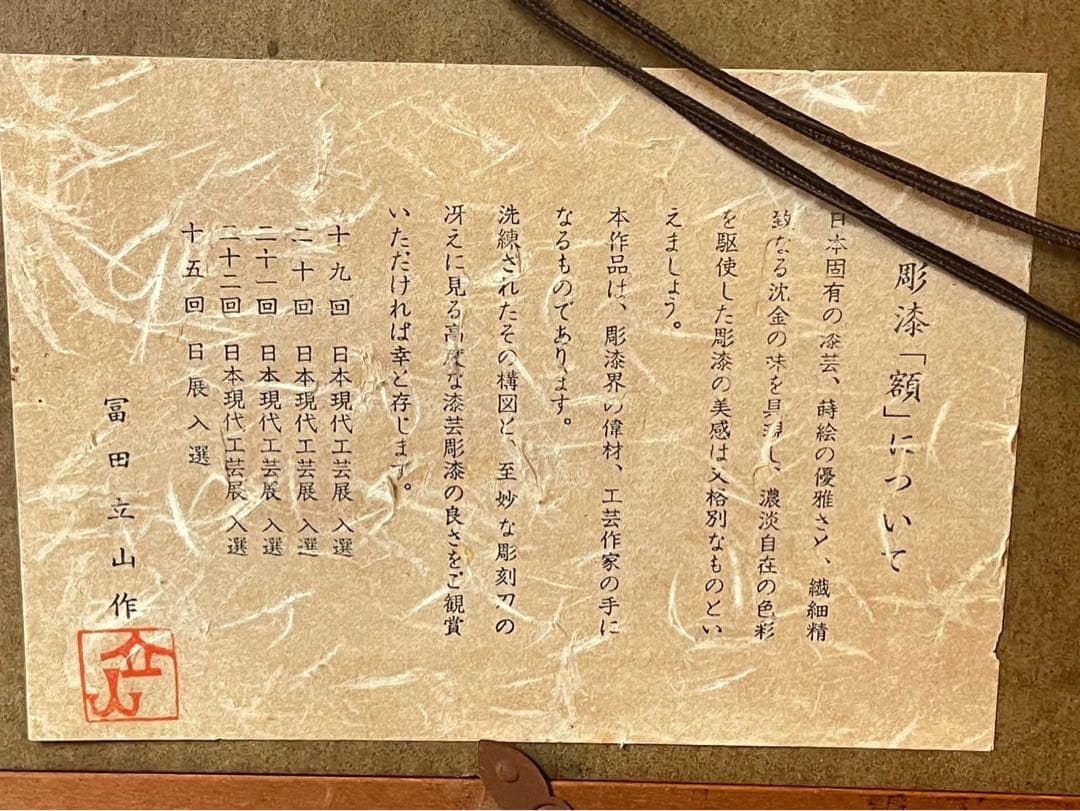 彫漆「額」について
日本固有の漆芸、蒔絵の優雅さと、繊細精
致なる沈金の味を具現し、濃淡自在の色彩
を駆使した彫漆の美感は又格別なものとい
えましょう。
本作品は、彫漆界の偉材、工芸作家の手に
なるものであります。
洗練されたその構図と、至妙な彫刻刀の
冴えに見る高度な漆芸彫漆の良さをご観賞
いただければ幸と存じます。
十九回 日本現代工芸展 入選
二十回 日本現代工芸展 入選
二十一回 日本現代工芸展 入選
二十二回 日本現代工芸展 入選
十五回 日展 入選
冨田立山作
立山